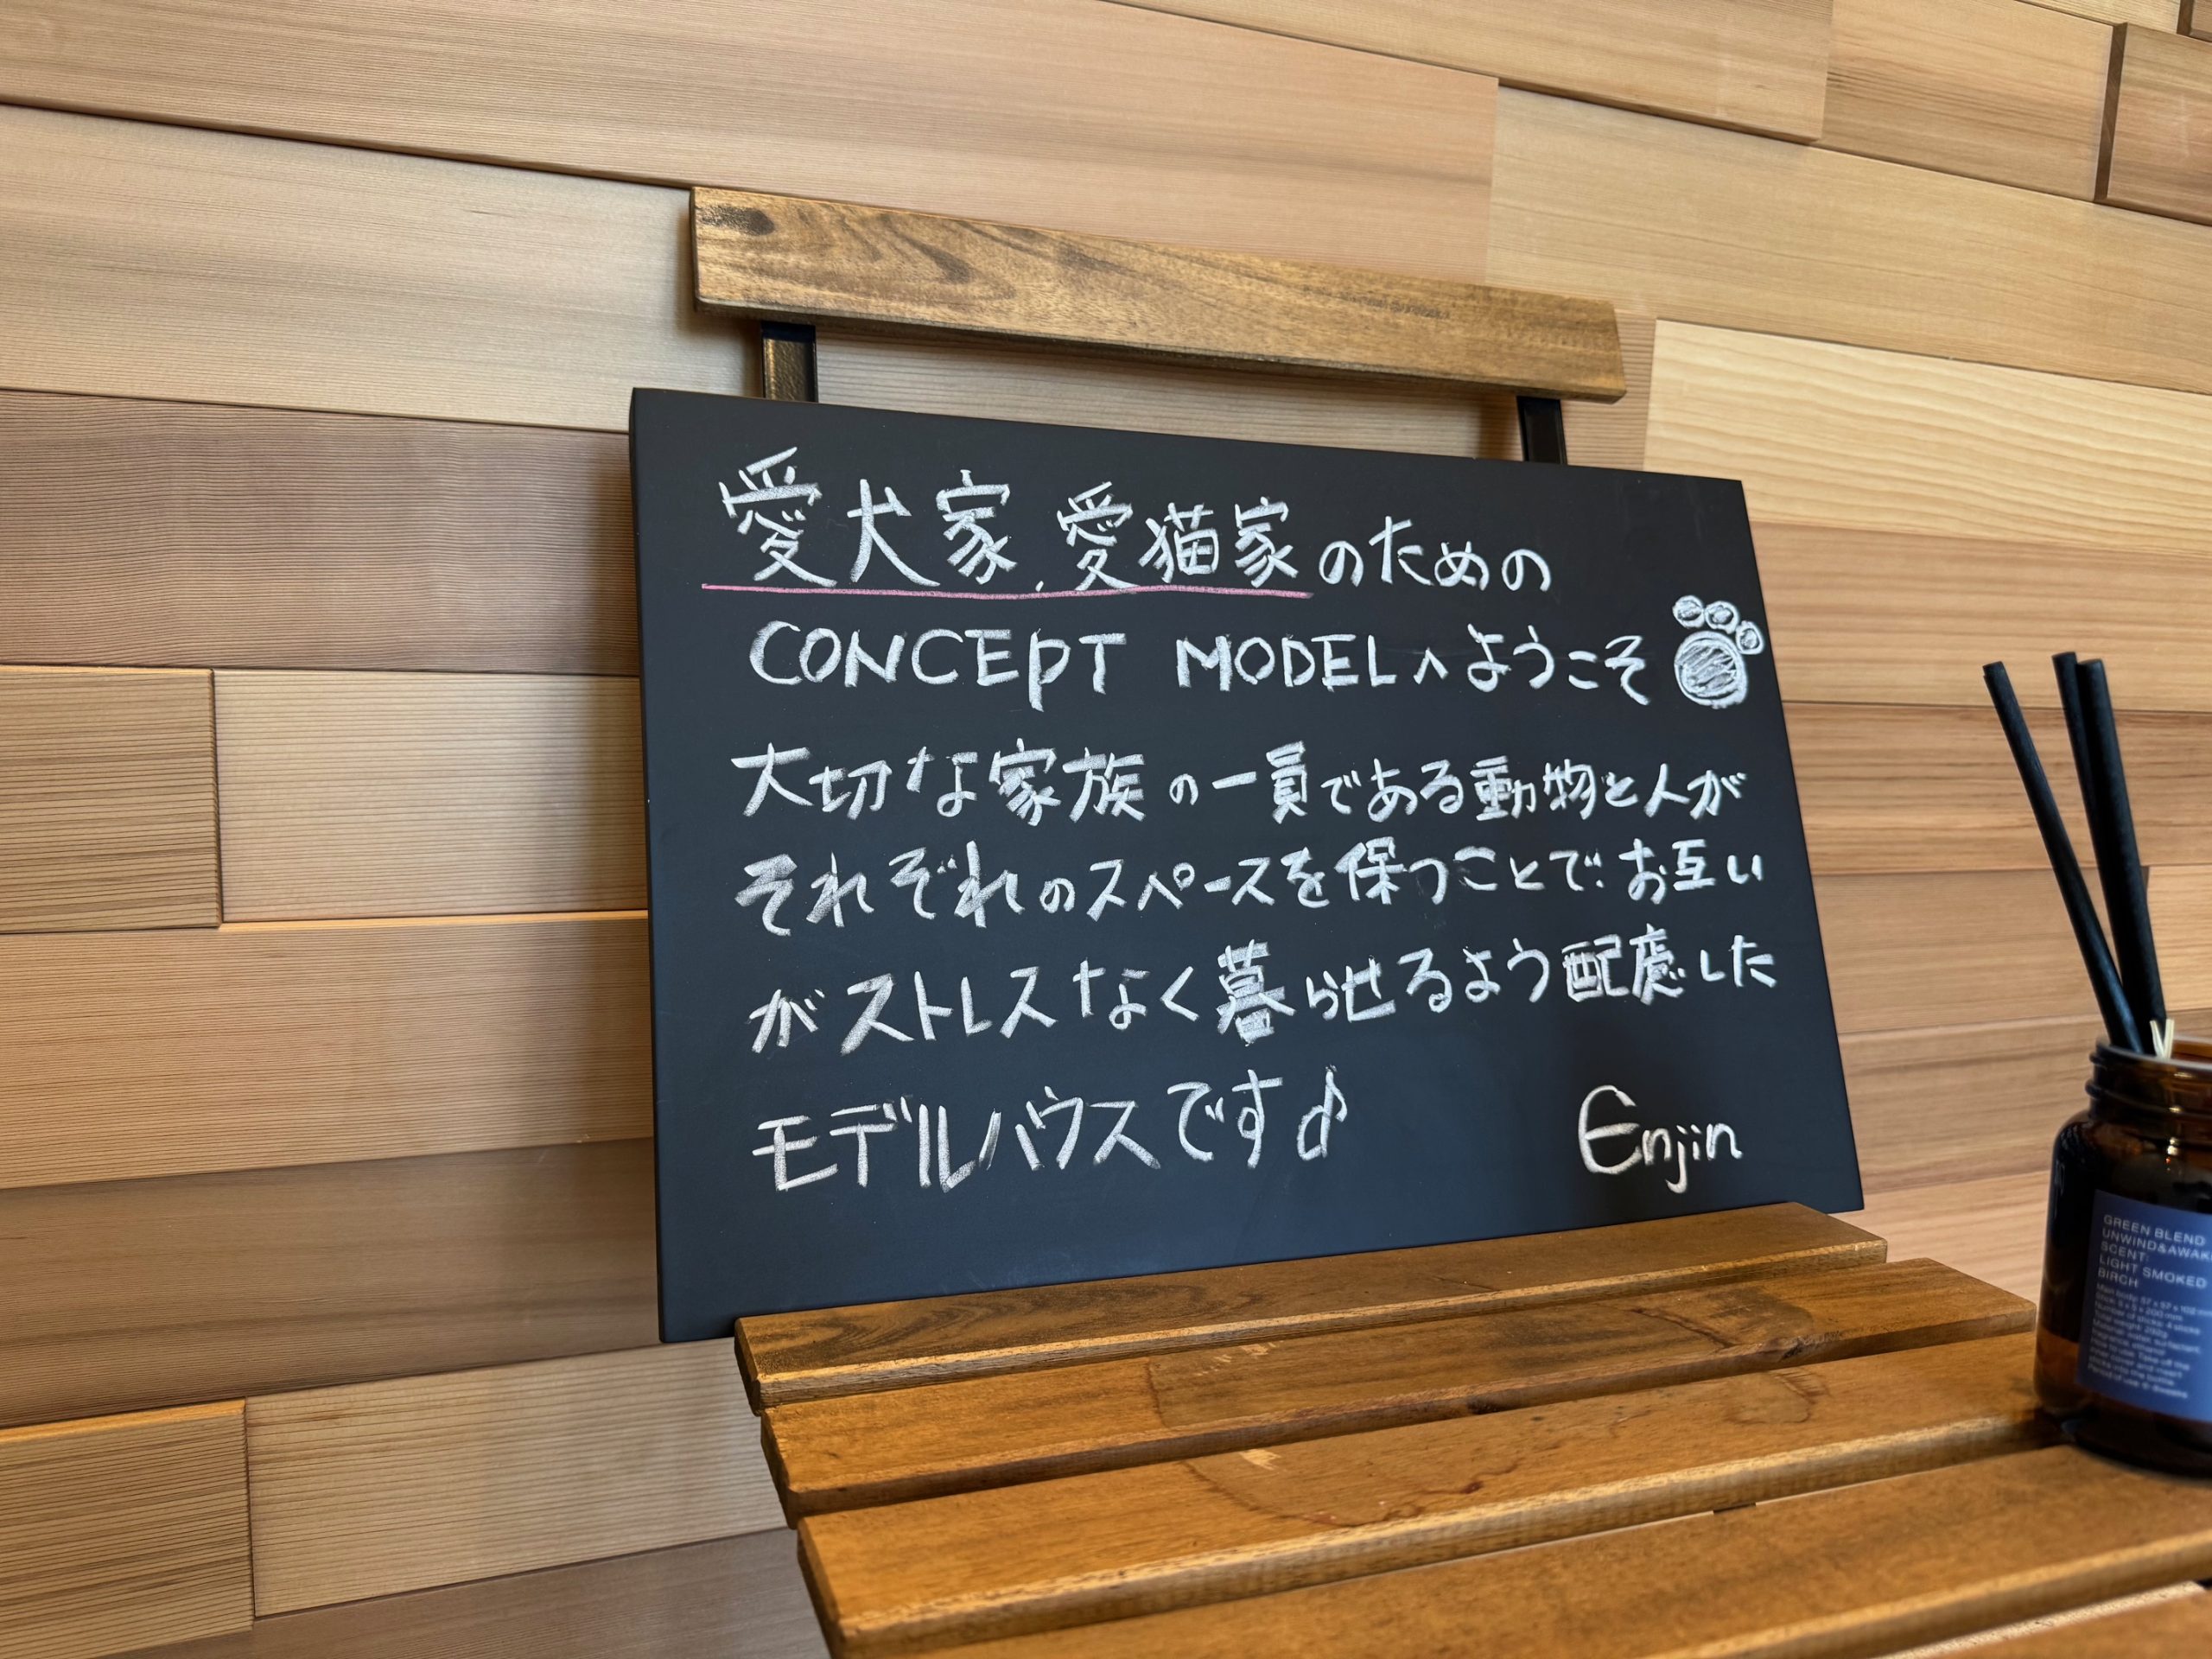 愛犬家、愛猫家のための
CONCEPT MODELへようこそ
大切な家族の一員である動物と人が
それぞれのスペースを保つことで、お互い
がストレスなく暮らせるよう配慮した
モデルハウスです♪
Enjin
GREEN BLEND
UNWIND&AWAK
SCENT:
LIGHT SMOKED
BIRCH